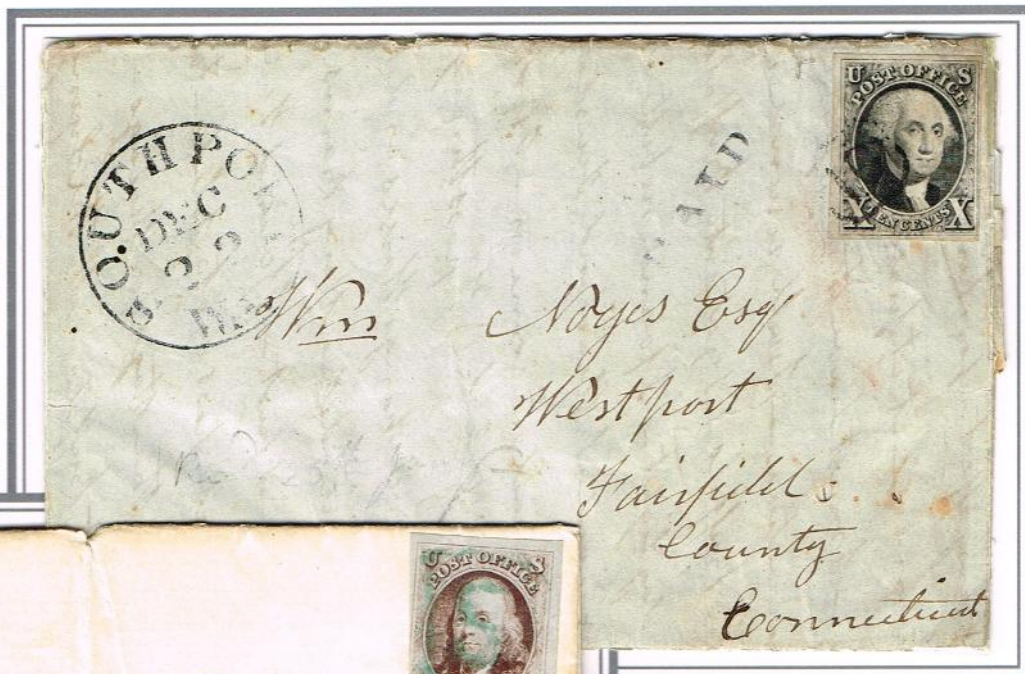 SOUTHPORT
DEC
PAID
U S
POST OFFICE
X TEN CENTS X
Wm Noyes Esq
Westport
Fairfield
County
Connecticut
U S
POST OFFICE